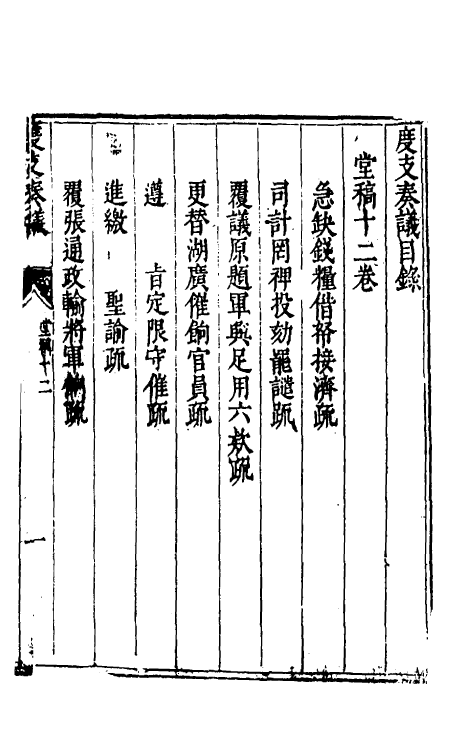 度支奏議目錄
堂稿十二卷
急缺錢糧借帑接濟疏
司計罔裨投劾罷譴疏
覆議原題軍興足用六欵疏
更替湖廣催餉官員疏
遵 旨定限守催疏
進繳 聖諭疏
覆張通政輸將軍疏
度支奏議 堂稿十二 一